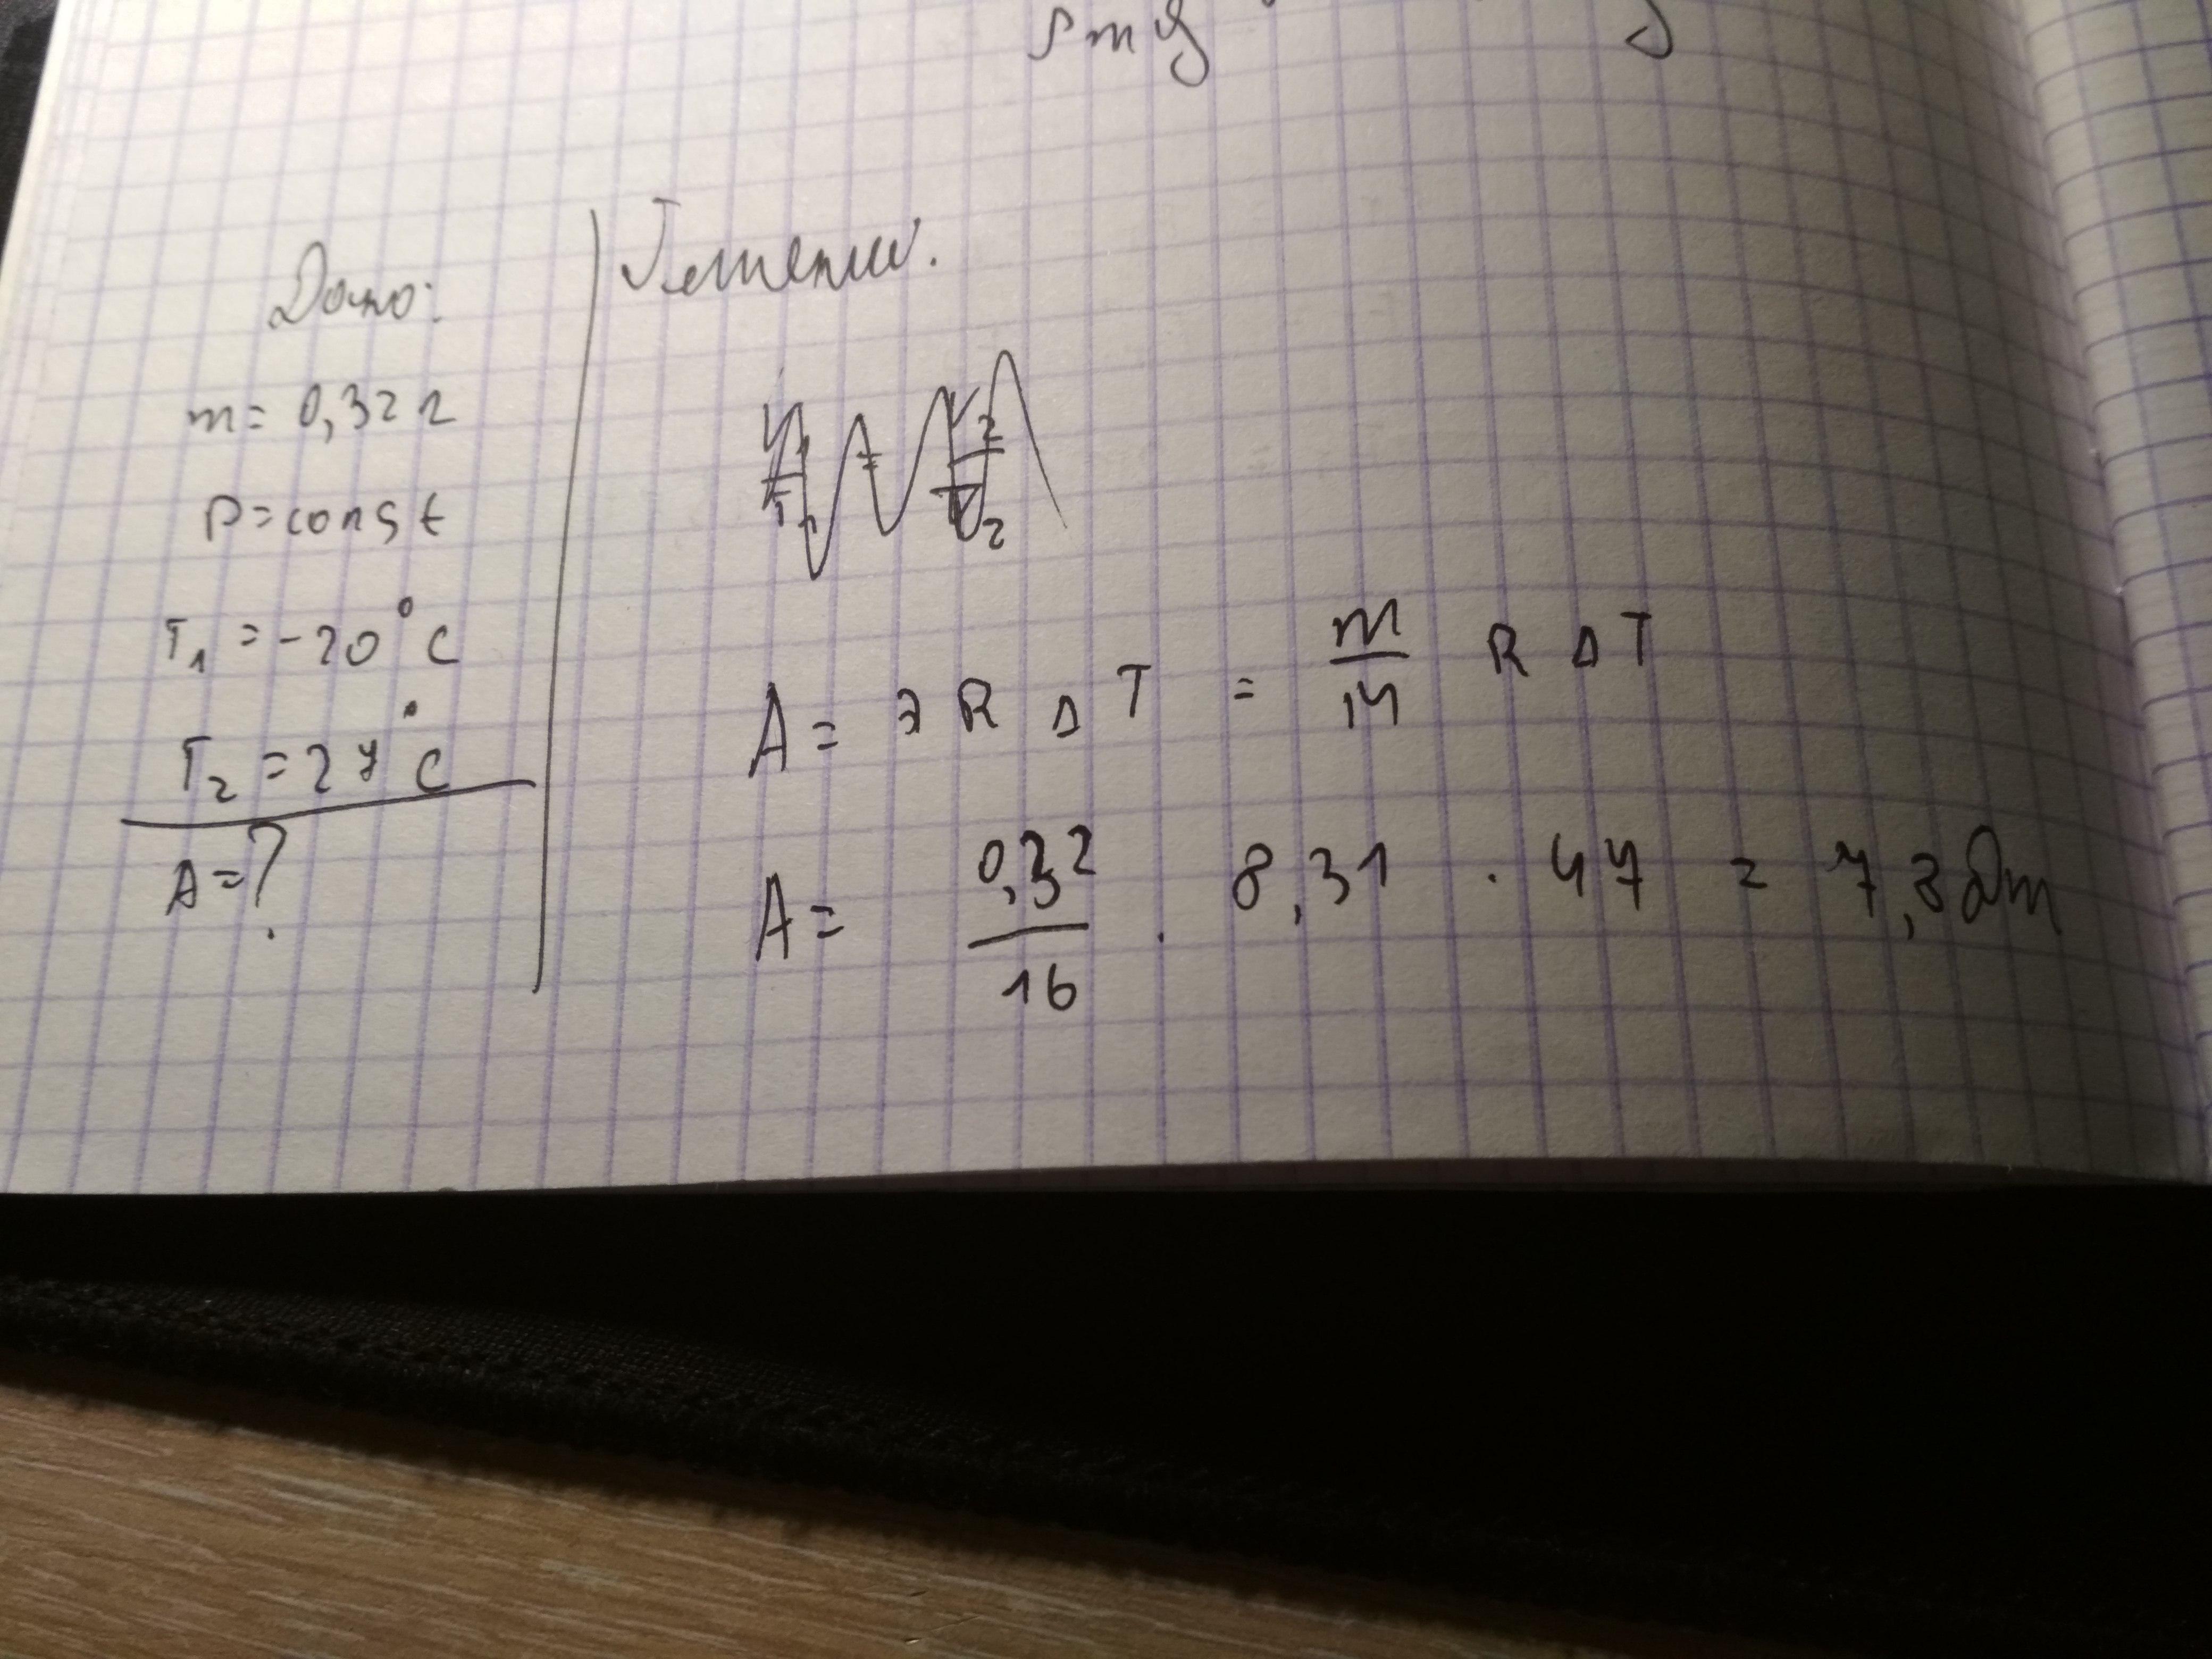 Дано:
m = 0,32 г
P = const
T₁ = -20°C
T₂ = 27°C
A = ?
Решение.
A = ν R Δ T = m/M R Δ T
A = 0,32/16 · 8,31 · 47 = 7,8 Дж